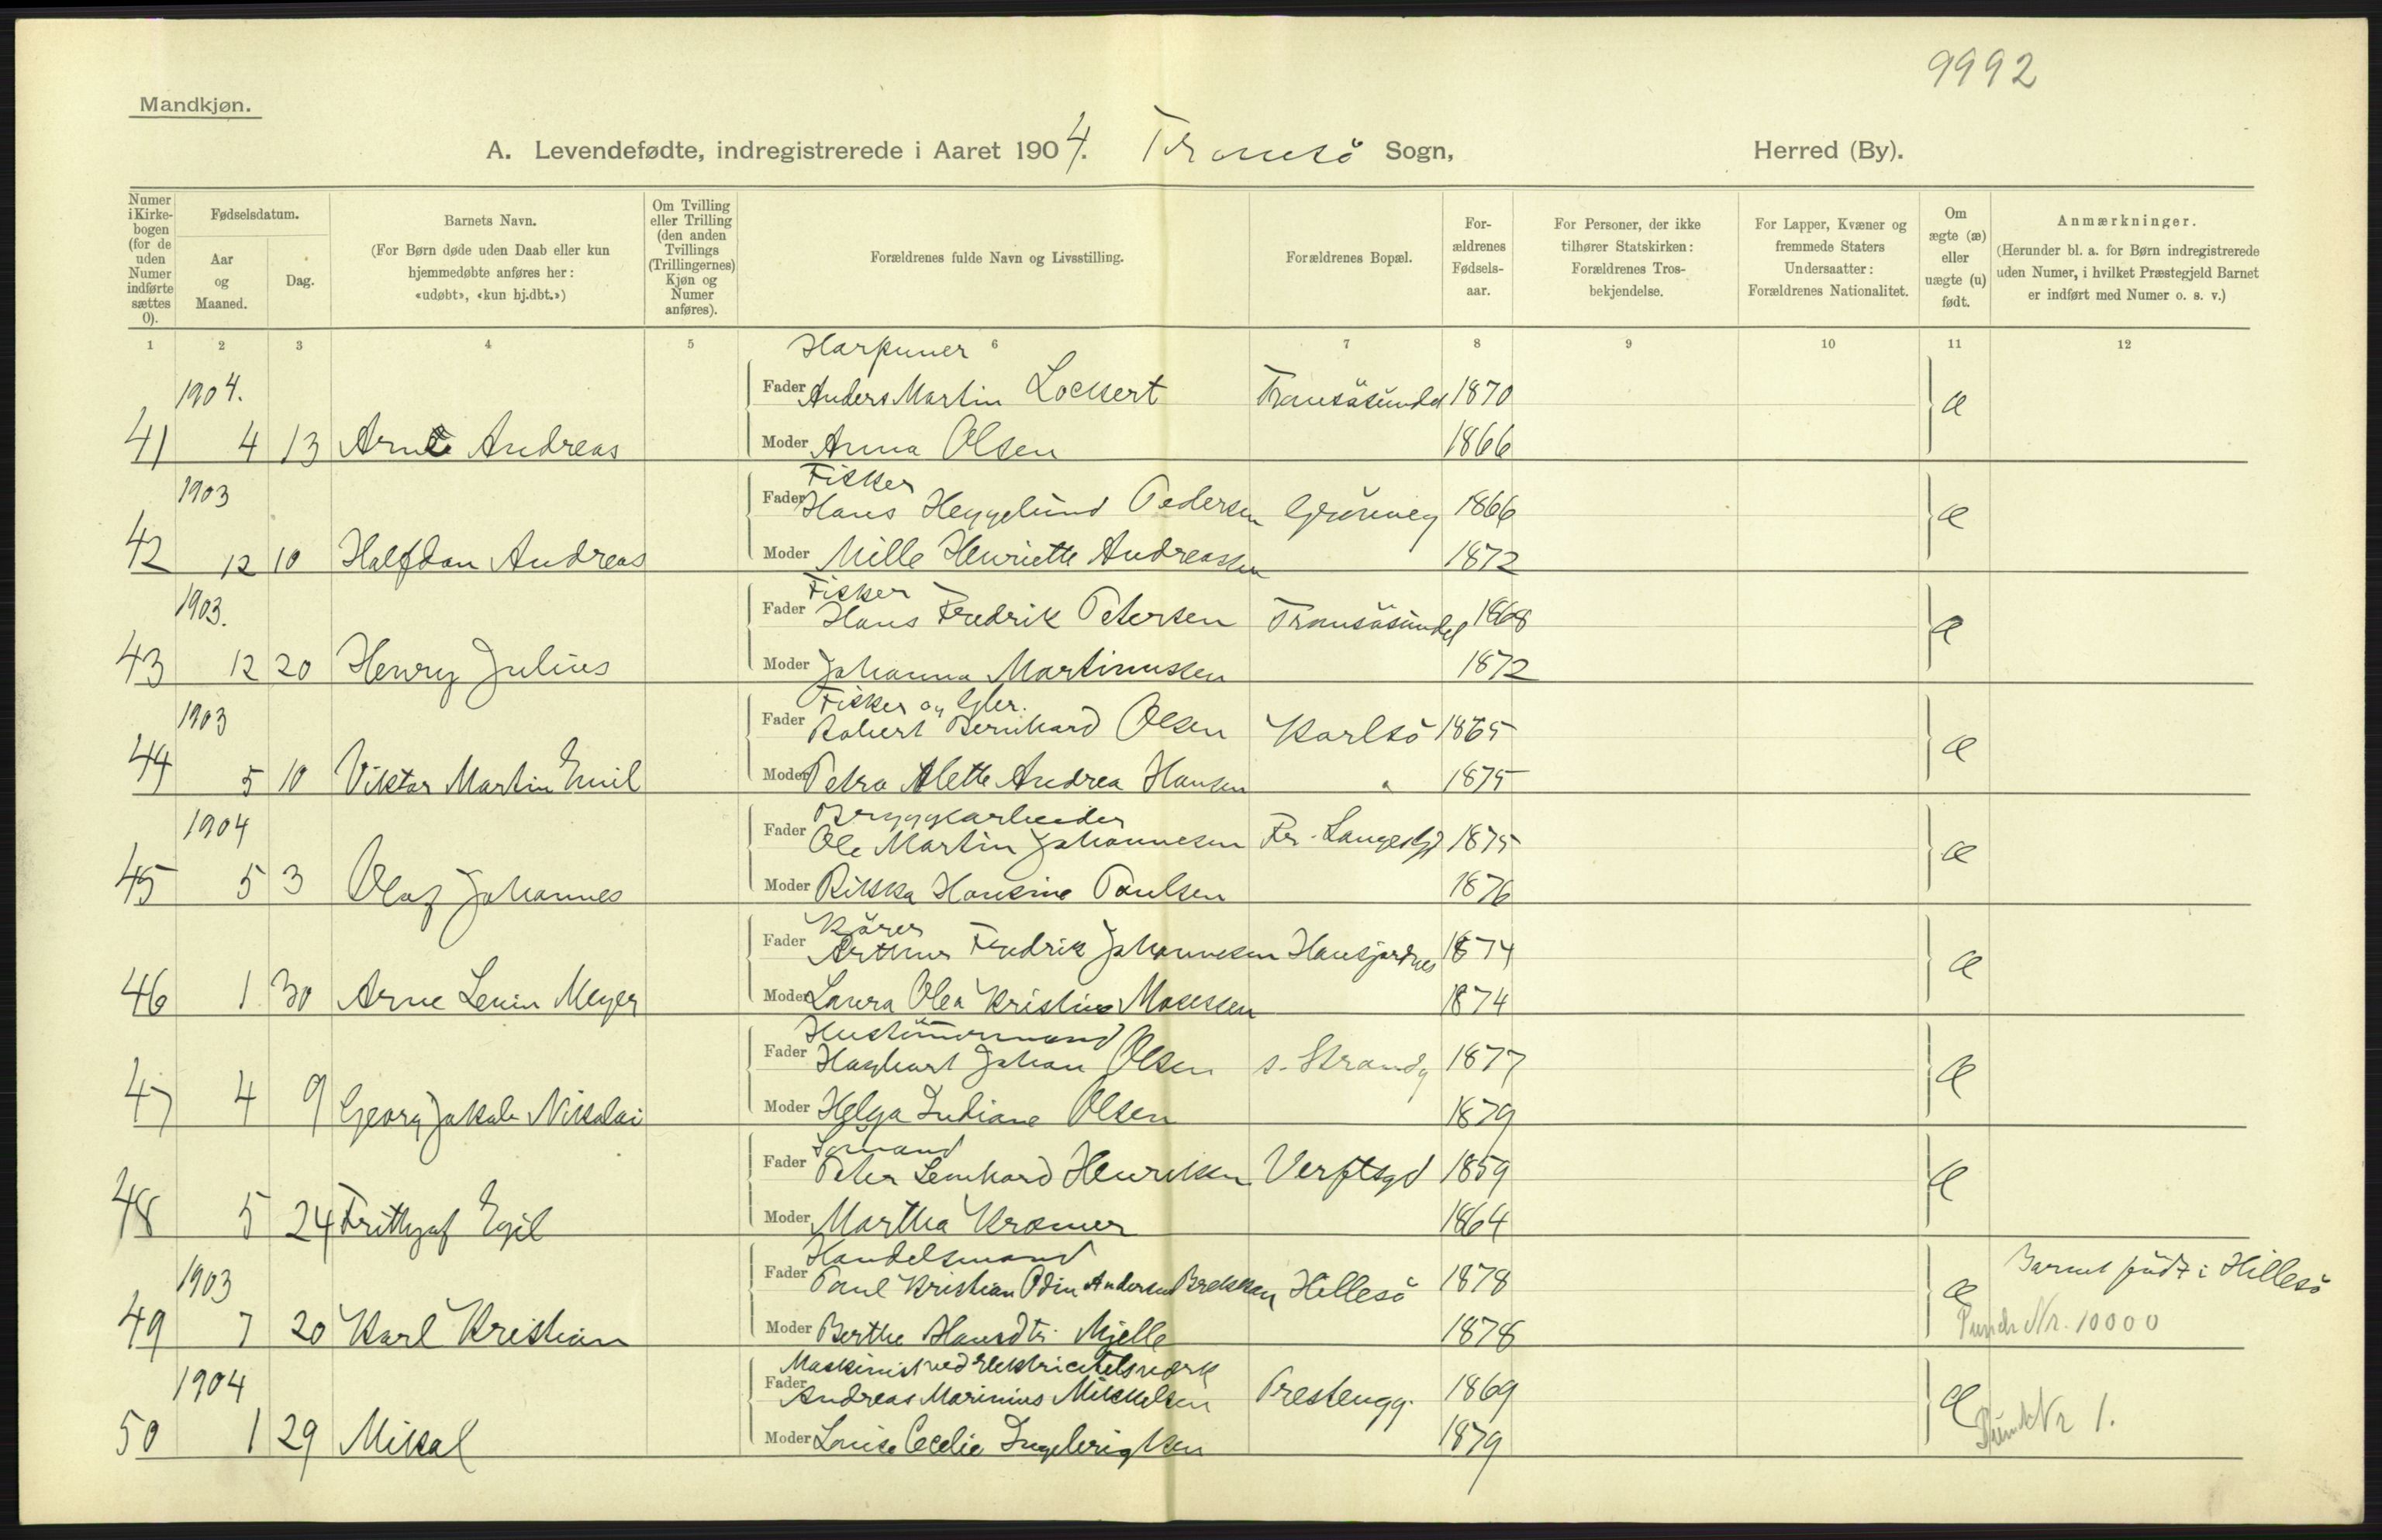 9992
Mandkjøn.
A. Levendefødte, indregistrerede i Aaret 1904. Tromsö Sogn, Herred (By).
Numer i Kirke-bogen (for de uden Numer indførte sættes 0).
Fødselsdatum.
Aar og Maaned.
Dag.
Barnets Navn.
(For Børn døde uden Daab eller kun hjemmedøbte anføres her: «udøbt», «kun hj.dbt.»)
Om Tvilling eller Trilling (den anden Tvillings (Trillingernes) Kjøn og Numer anføres).
Forældrenes fulde Navn og Livsstilling.
Forældrenes Bopæl.
For-ældrenes Fødsels-aar.
For Personer, der ikke tilhører Statskirken: Forældrenes Tros-bekjendelse.
For Lapper, Kvæner og fremmede Staters Undersaatter: Forældrenes Nationalitet.
Om ægte (æ) eller uægte (u) født.
Anmærkninger.
(Herunder bl. a. for Børn indregistrerede uden Numer, i hvilket Præstegjeld Barnet er indført med Numer o. s. v.)
1 2 3 4 5 6 7 8 9 10 11 12
Harpuner
1904. Fader Anders Martin Lockert Tromsösundet 1870 æ
41 4 13 Arne Andreas Moder Anna Olsen 1866
Fisker
1903 Fader Hans Heggelund Pedersen Grönneg 1866 æ
42 12 10 Halfdan Andreas Moder Mille Henriette Andreassen 1872
Fisker
1903. Fader Hans Fredrik Petersen Tromsösundet 1868 æ
43 12 20 Henry Julius Moder Johanna Martinussen 1872
Fisker og Gbr.
1903 Fader Robert Bernhard Olsen Karlsö 1865 æ
44 5 10 Viktor Martin Emil Moder Petra Alette Andrea Hansen " 1875
Bryggearbeider
1904 Fader Ole Martin Johannesen Fr. Langesgd 1875 æ
45 5 3 Olaf Johannes Moder Rikka Hansine Paulsen 1876
Körer
Fader Arthur Fredrik Johannesen Hansjordnes 1874 æ
46 1 30 Arne Lenin Meyer Moder Laura Olea Kristine Mosessen 1874
Hustömmermand
Fader Hagbart Johan Olsen s. Strandg 1877 æ
47 4 9 Georg Jakob Nikolai Moder Helga Indiane Olsen 1879
Sömand
Fader Peter Leonhard Henriksen Verftsgd 1859 æ
48 5 24 Frithjof Egil Moder Martha Kræmer 1864
Handelsmand
1903 Fader Paul Kristian Odin Andersen Hillesö 1878 æ Barnet födt i Hillesö
49 7 20 Karl Kristian Moder Berthe Hansdtr. Mjelle 1878 Punch Nr. 10000
Maskinist ved Elektricitetsværk
1904 Fader Andreas Marinius Mikkelsen Prestengg. 1869 æ
50 1 29 Mikal Moder Louise Cecelie Ingebrigtsen 1879 Punch Nr 1.